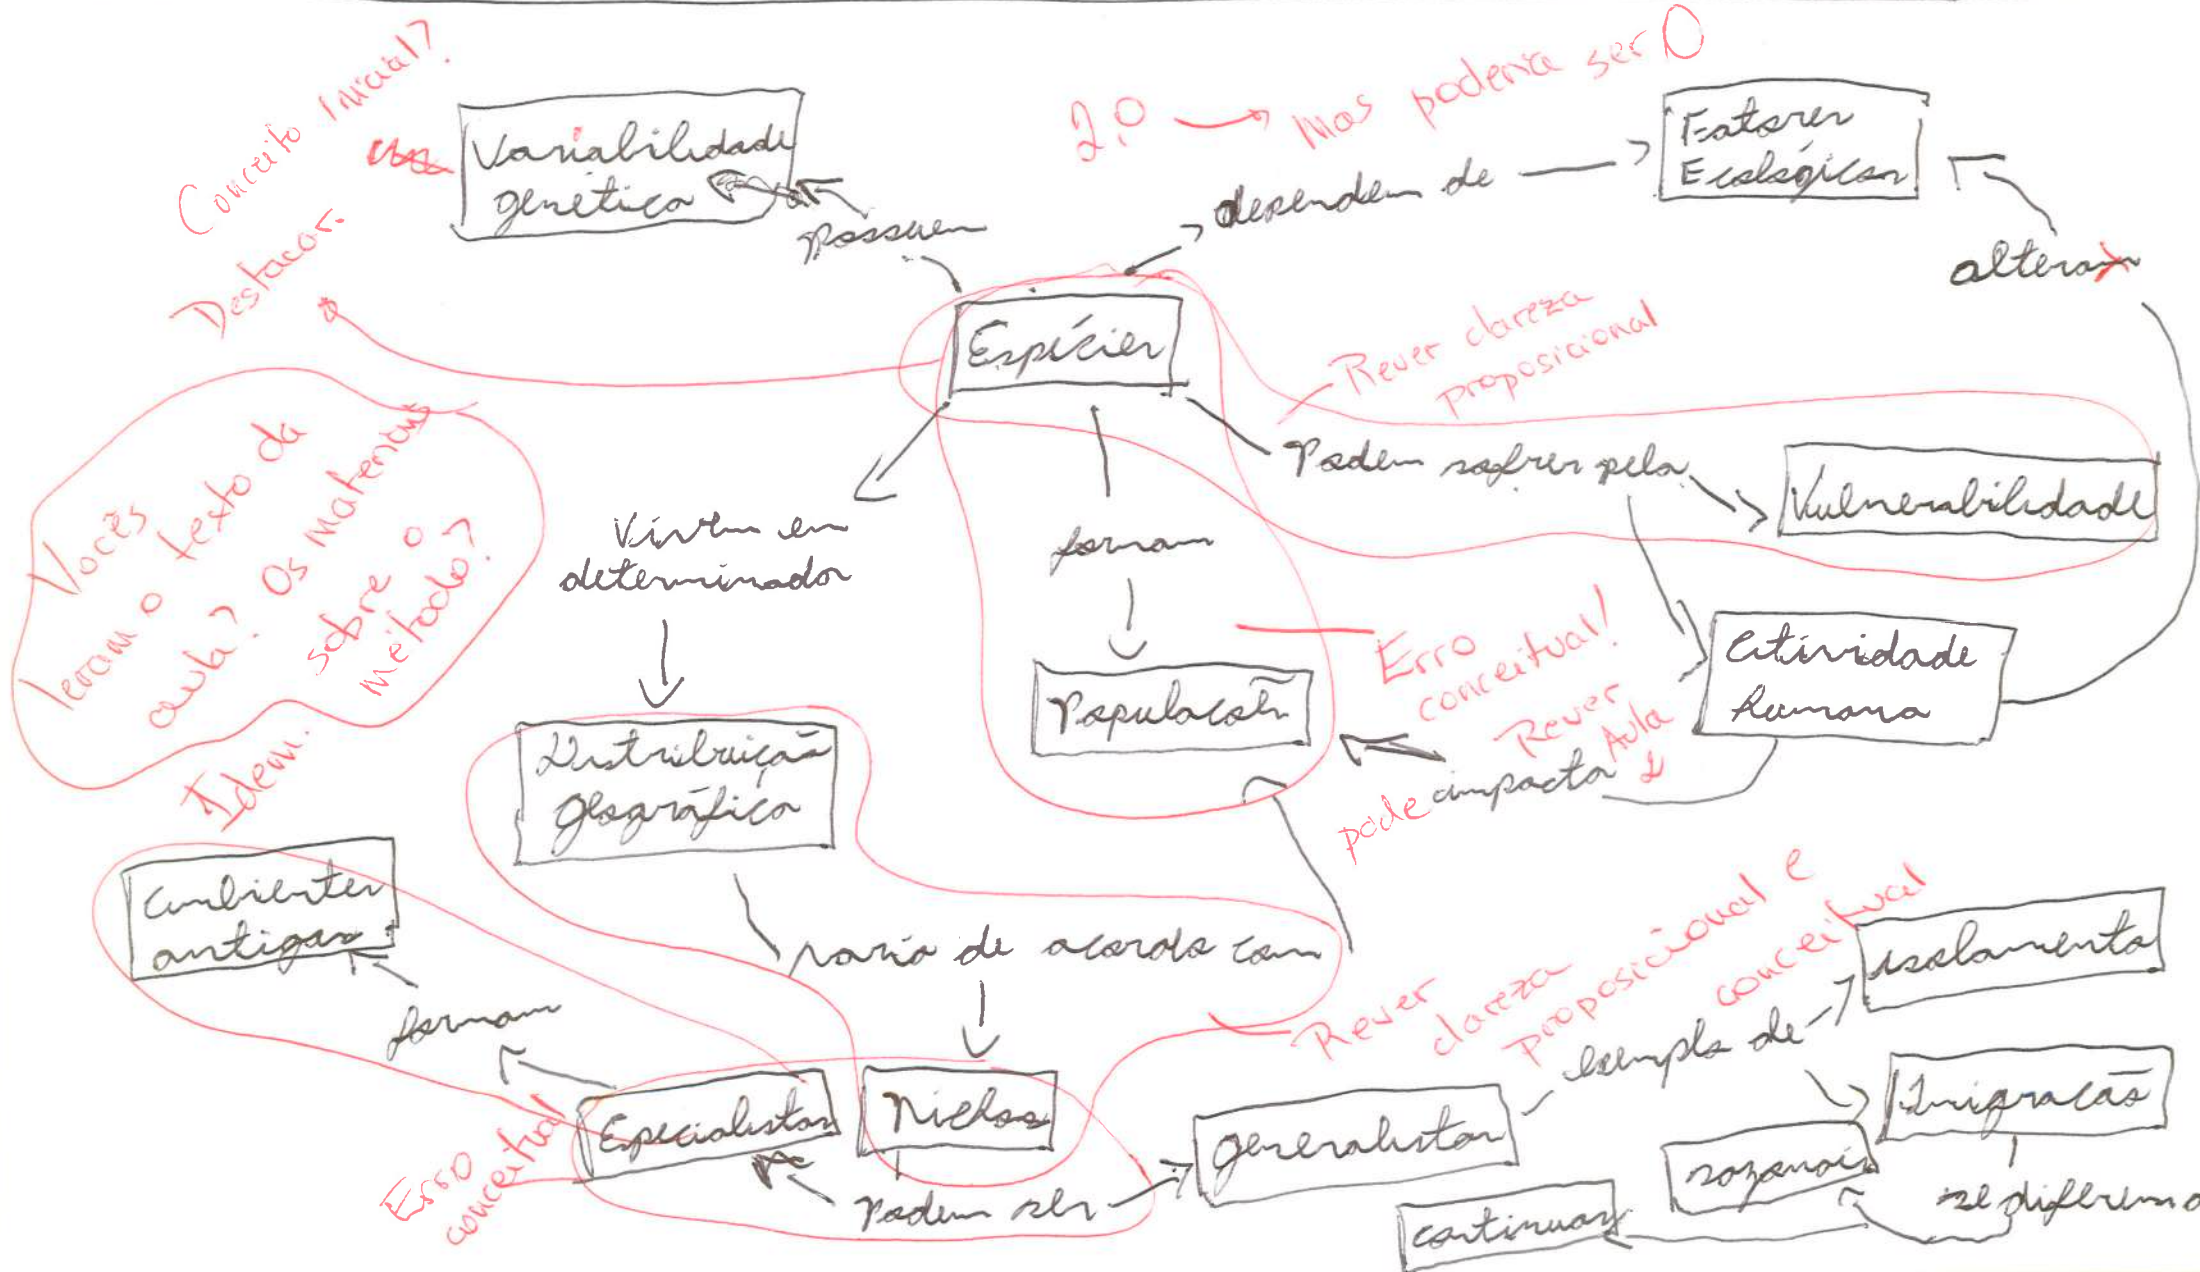 Conceito Inicial?
Destacar.
Variabilidade
genética
possuem
2,0 → Mas poderia ser 0
dependem de
Fatores
Ecológicos
altera
Espécies
Rever clareza
proposicional
Podem sofrer pela
Vulnerabilidade
Vocês
leram o texto da
aula? Os materiais
sobre o
método?
Vivem em
determinados
formam
População
Erro
conceitual!
Rever
Aula
2
Atividade
humana
pode impacta
Distribuição
geográfica
Idem.
Ambientes
antigos
formam
varia de acordo com
Rever
clareza
proposicional e
conceitual
Isolamento
exemplo de
Imigração
Especialistas
Nichos
generalistas
Erro
conceitual
Podem ser
sazonais
continuas
se diferem